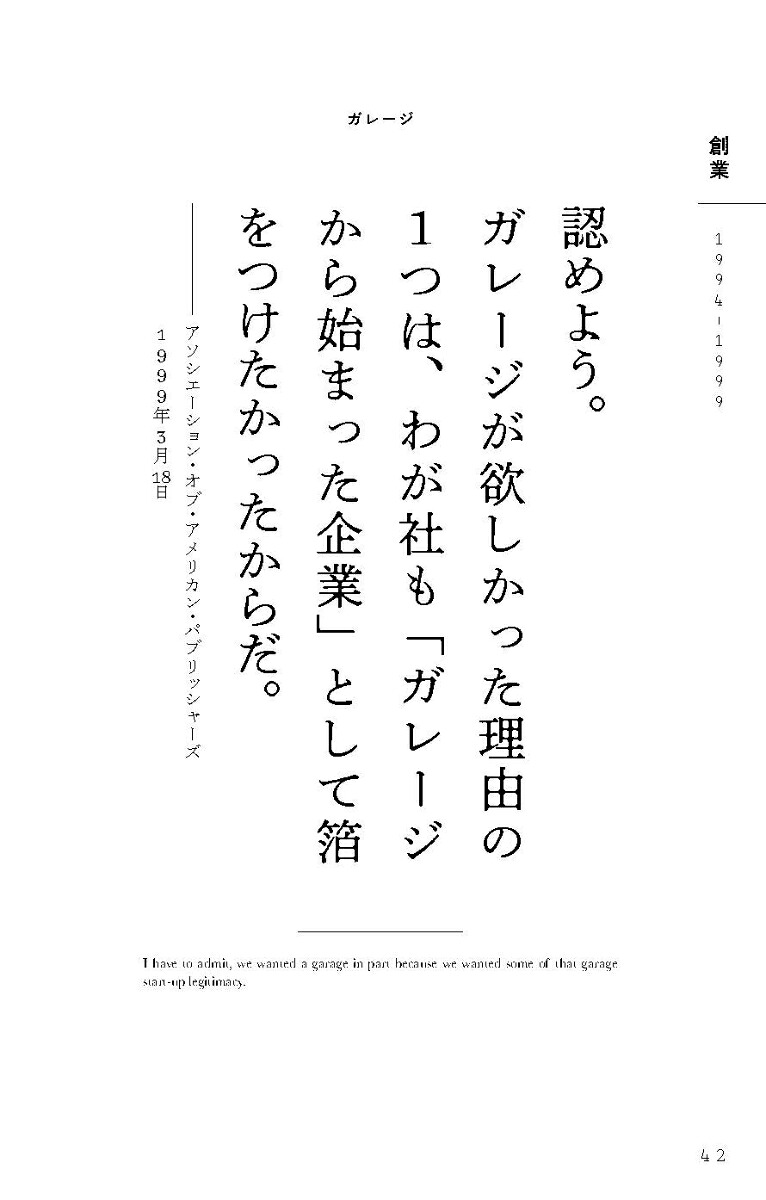 創業
1994-1999
ガレージ
認めよう。
ガレージが欲しかった理由の
1つは、わが社も「ガレージ
から始まった企業」として箔
をつけたかったからだ。
――アソシエーション・オブ・アメリカン・パブリッシャーズ
1999年3月18日
I have to admit, we wanted a garage in part because we wanted some of that garage
start-up legitimacy.
42